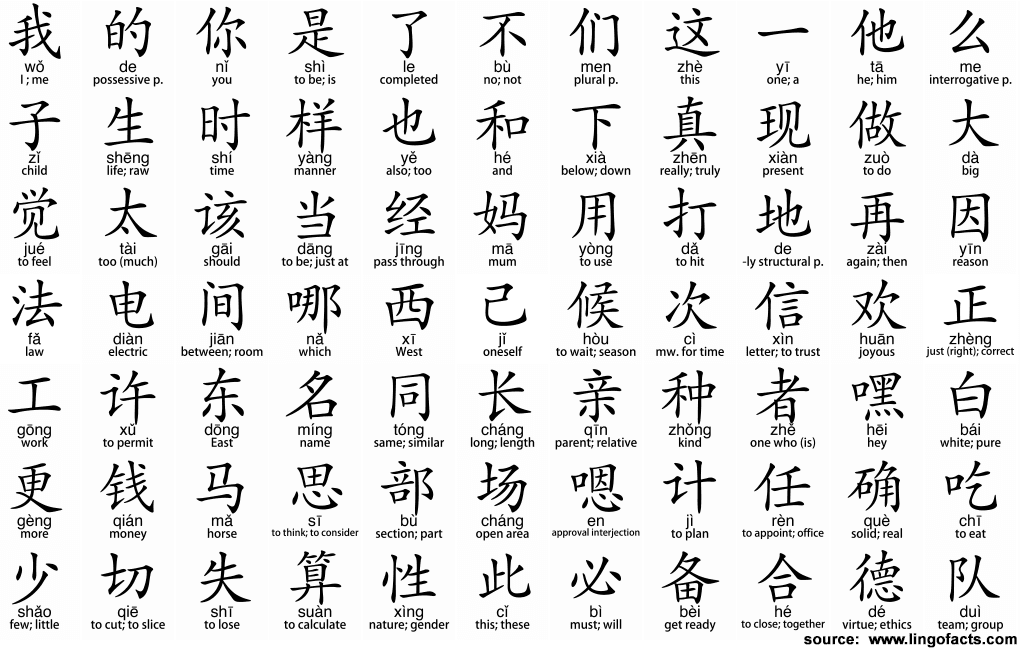 我 的 你 是 了 不 们 这 一 他 么
wǒ de nǐ shì le bù men zhè yī tā me
I ; me possessive p. you to be; is completed no; not plural p. this one; a he; him interrogative p.
子 生 时 样 也 和 下 真 现 做 大
zǐ shēng shí yàng yě hé xià zhēn xiàn zuò dà
child life; raw time manner also; too and below; down really; truly present to do big
觉 太 该 当 经 妈 用 打 地 再 因
jué tài gāi dāng jīng mā yòng dǎ de zài yīn
to feel too (much) should to be; just at pass through mum to use to hit -ly structural p. again; then reason
法 电 间 哪 西 己 候 次 信 欢 正
fǎ diàn jiān nǎ xī jǐ hòu cì xìn huān zhèng
law electric between; room which West oneself to wait; season mw. for time letter; to trust joyous just (right); correct
工 许 东 名 同 长 亲 种 者 嘿 白
gōng xǔ dōng míng tóng cháng qīn zhǒng zhě hēi bái
work to permit East name same; similar long; length parent; relative kind one who (is) hey white; pure
更 钱 马 思 部 场 嗯 计 任 确 吃
gèng qián mǎ sī bù cháng en jì rèn què chī
more money horse to think; to consider section; part open area approval interjection to plan to appoint; office solid; real to eat
少 切 失 算 性 此 必 备 合 德 队
shǎo qiē shī suàn xìng cǐ bì bèi hé dé duì
few; little to cut; to slice to lose to calculate nature; gender this; these must; will get ready to close; together virtue; ethics team; group
source: www.lingofacts.com